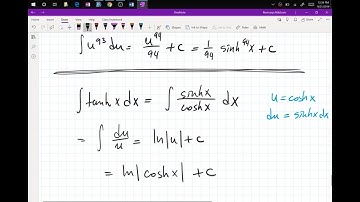 ∫u⁹³du = u⁹⁴/94 + c = 1/94 sinh⁹⁴x + c
∫tanhx dx = ∫ sinhx/coshx dx
u = coshx
du = sinhx dx
= ∫ du/u = ln|u| + c
= ln|coshx| + c